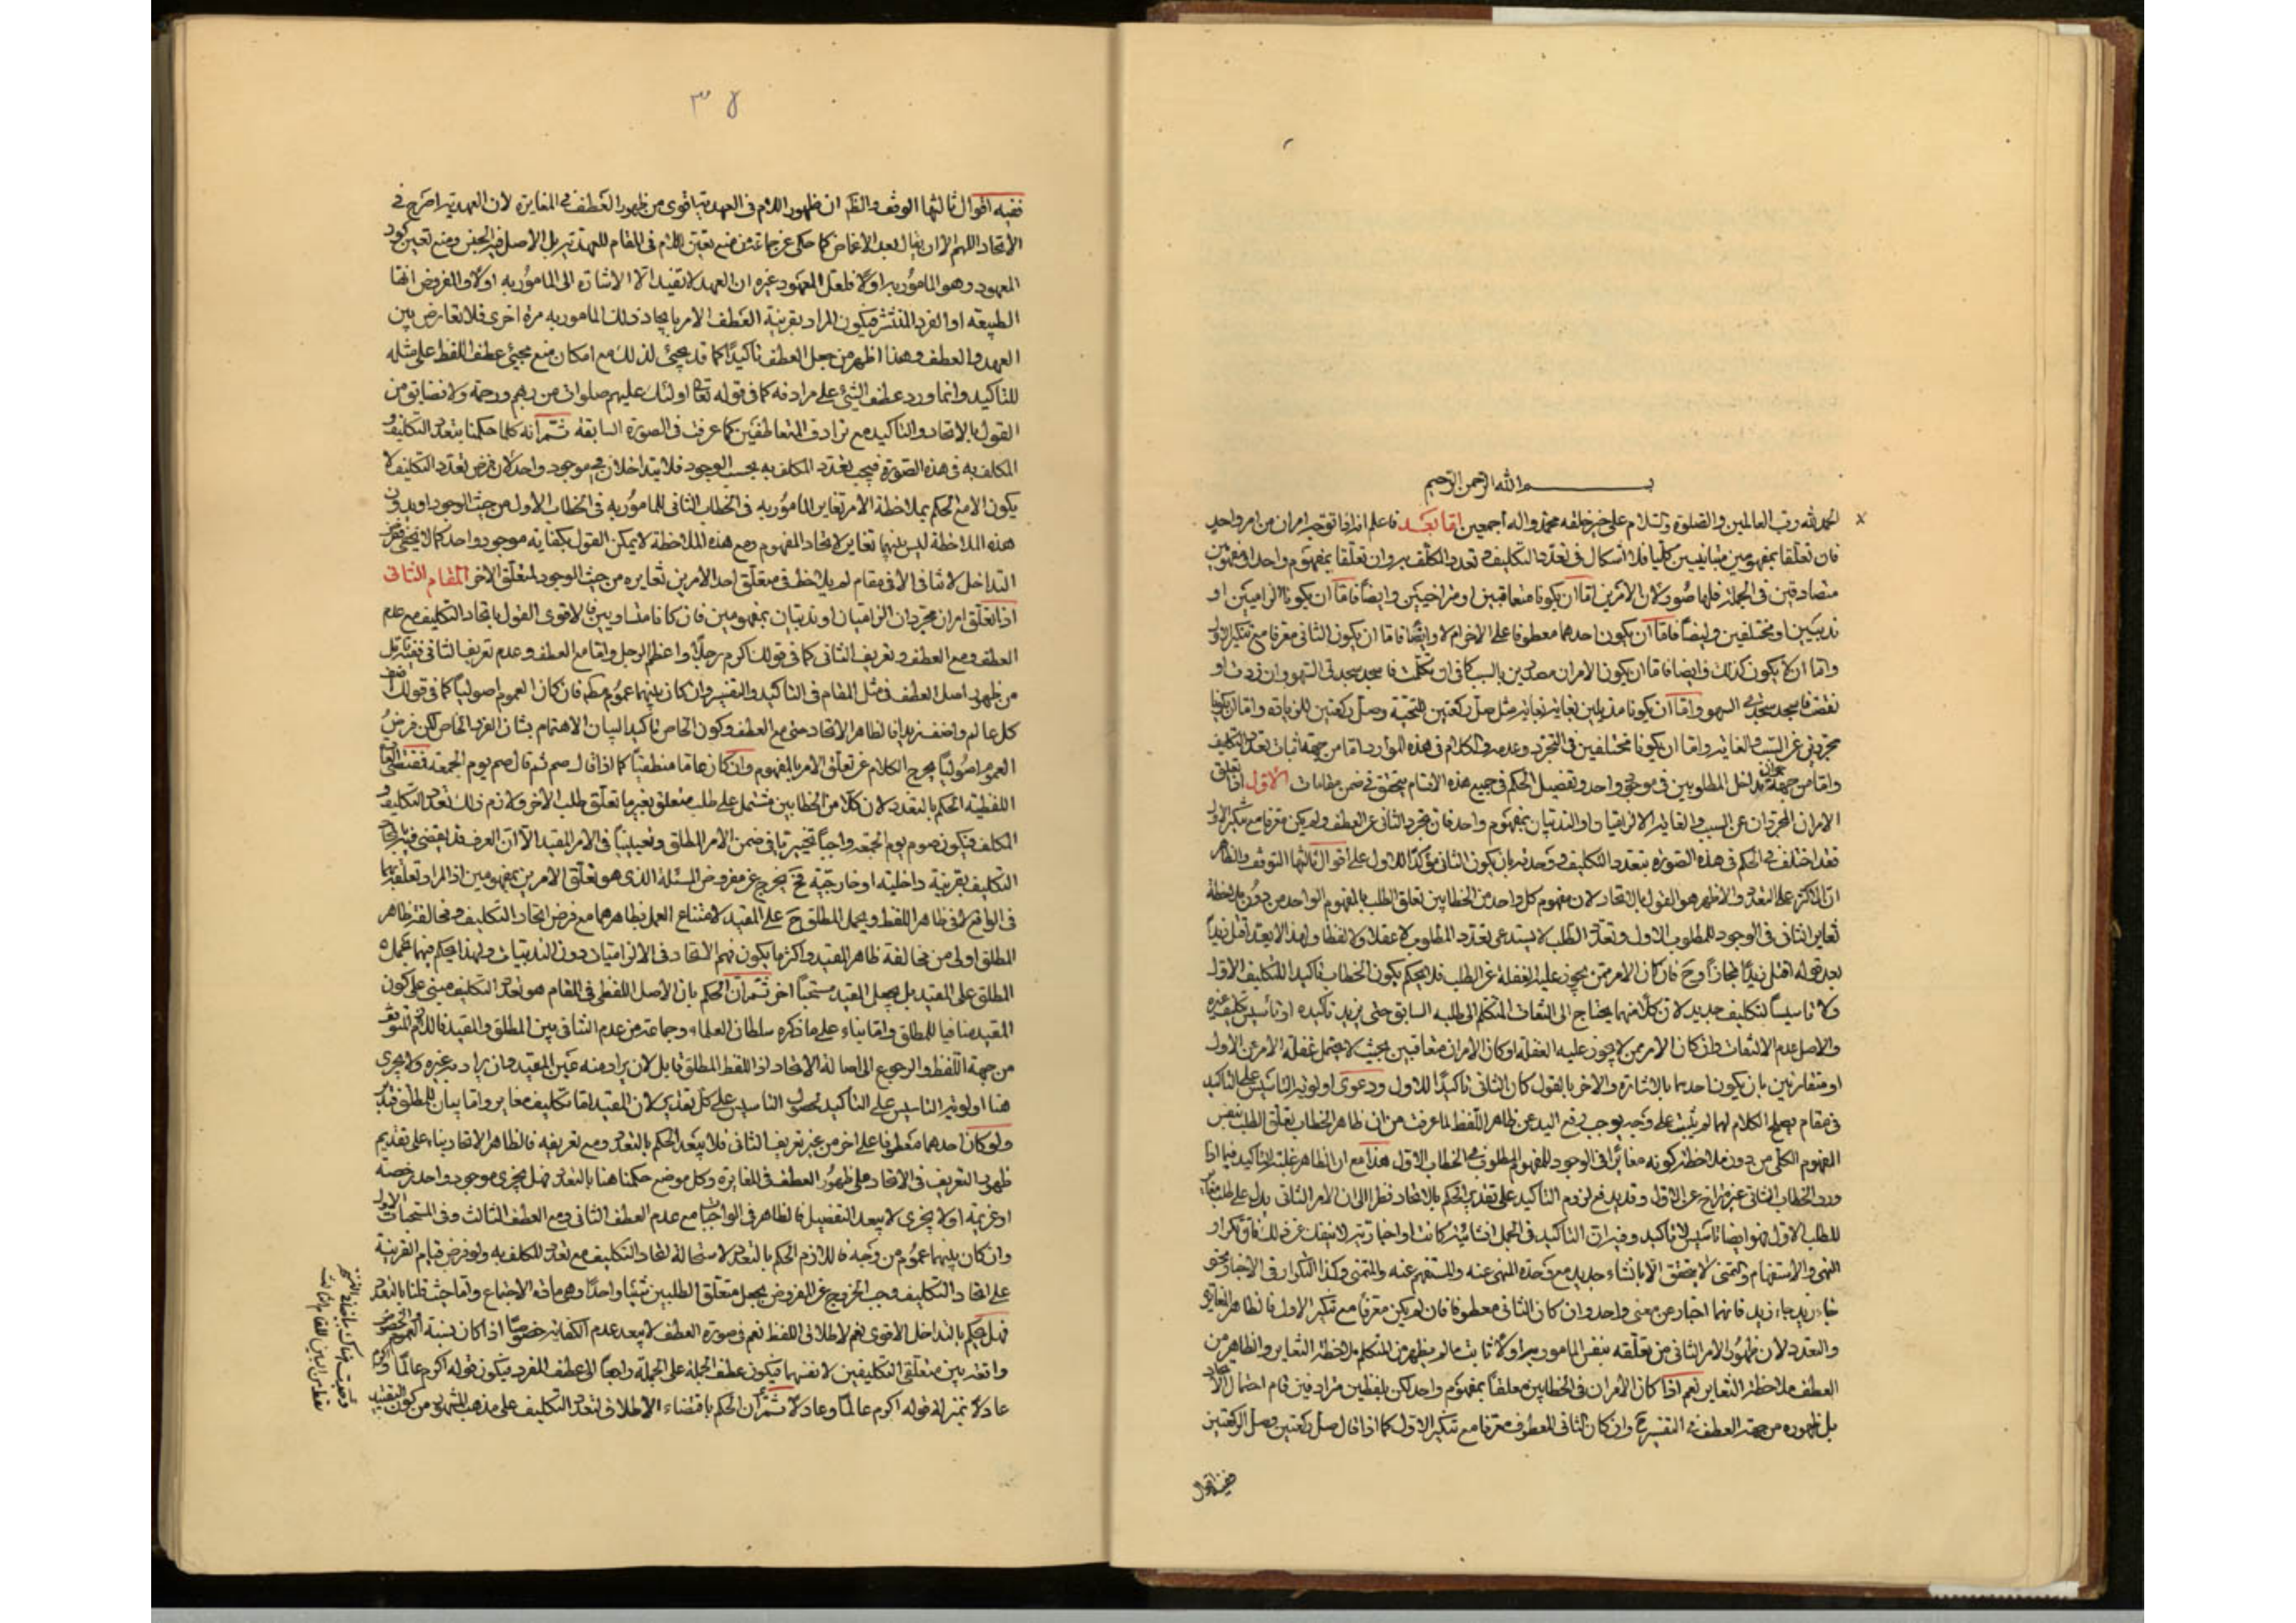 بسم الله الرحمن الرحيم
الحمد لله رب العالمين والصلوة والسلام على خير خلقه محمد واله اجمعين اما بعد فاعلم انه اذا توجه امران من امر واحد
فان تعلقا بمفهومين متباينين كليا فلا اشكال فى تعدد التكليف وتعدد المكلف به وان تعلقا بمفهوم واحد او مفهومين
متصادقين فى الجملة فلها صور لان الامرين اما ان يكونا متعاقبين او متراخيين وايضا فاما ان يكونا الزاميين او
ندبيين او مختلفين وايضا فاما ان يكون احدهما معطوفا على الاخر ام لا وايضا فاما ان يكون الثانى معرفا مع تنكير الاول
واما ان لا يكون كذلك وايضا فاما ان يكون الامران مصدرين بالسبب كما فى ان تكلمت فاسجد سجدتى السهو وان زدت او
نقصت فاسجد سجدتى السهو واما ان يكونا مذيلين بغاية مثل صل ركعتين للتحية وصل ركعتين للزيادة واما ان يكونا
مجردين عن السبب والغاية واما ان يكونا مختلفين فى التجرد وعدمه والكلام فى هذه الموارد اما من جهة اثبات تعدد التكليف
واما من جهة جواز تداخل المطلوبين فى موجود واحد وتفصيل الحكم فى جميع هذه الاقسام يتحقق فى ضمن مقامات الاول اذا تعلق
الامران المجردان عن السبب والغاية الالزاميان او الندبيان بمفهوم واحد فان تجرد الثانى عن العطف ولم يكن معرفا مع تنكير الاول
فقد اختلف فى الحكم فى هذه الصورة بتعدد التكليف ووحدته بان يكون الثانى مؤكدا للاول على اقوال ثالثها التوقف والظاهر
ان الاكثر على التعدد والاظهر هو القول بالاتحاد لان مفهوم كل واحد من الخطابين تعلق الطلب بالمفهوم الواحد من دون ملاحظة
تغاير الثانى فى الوجود للمطلوب الاول وتعدد الطلب لا يستدعى تعدد المطلوب لا عقلا ولا لفظا ولهذا لا يعد اقتل زيدا
بعد قوله اقتل زيدا مجازا وح فان كان الامر ممن يجوز عليه الغفلة عن الطلب فلا يحكم بكون الخطاب تاكيدا للتكليف الاول
ولا تاسيسا لتكليف جديد لان كلا منهما يحتاج الى التفات المتكلم الى طلبه السابق حتى يريد تاكيده او تاسيس تكليف غيره
والاصل عدم الالتفات وان كان الامر ممن لا يجوز عليه الغفلة او كان الامران متعاقبين بحيث لا يحتمل غفلة الامر عن الاول
او متقارنين بان يكون احدهما بالاشارة والاخر بالقول كان الثانى تاكيدا للاول ودعوى اولوية التاسيس على التاكيد
فى مقام يصلح الكلام لهما لم يثبت على وجه يوجب رفع اليد عن ظاهر اللفظ لما عرفت من ان ظاهر الخطاب تعلق الطلب بنفس
المفهوم الكلى من دون ملاحظة كونه مغايرا فى الوجود للمفهوم المطلوب فى الخطاب الاول هذا مع ان الظاهر غلبة التاكيد فيما اذا
ورد الخطاب الثانى غير متراخ عن الاول وقد يدفع لزوم التاكيد على تقدير الحكم بالاتحاد نظرا الى ان الامر الثانى يدل على طلب مغاير
للطلب الاول فهو ايضا تاسيس لا تاكيد وفيه ان التاكيد فى الجمل انشائية كانت او اخبارية لا ينفك عن ذلك فان تكرار
النهى والاستفهام والتمنى لا يتحقق الا بانشاء جديد مع وحدة المنهى عنه والمستفهم عنه والمتمنى وكذا التكرار فى الاخبار نحو
جاء زيد جاء زيد فانهما اخبار عن معنى واحد وان كان الثانى معطوفا فان لم يكن معرفا مع تنكير الاول فالظاهر التغاير
والتعدد لان ظهور الامر الثانى من تعلقه بنفس المامور به اولا ثابت ما لم يظهر من المتكلم ملاحظة التغاير والظاهر من
العطف ملاحظة التغاير نعم اذا كان الامران فى الخطابين معلقا بمفهوم واحد لكن بلفظين مترادفين قام احتمال الاتحاد
بل ظهوره من جهة العطف فى التفسير ح وان كان الثانى المعطوف معرفا مع تنكير الاول كما اذا قال صل ركعتين وصل الركعتين
ففيه اقوال
٣٨
ففيه اقوال ثالثها الوقف والظ ان ظهور اللام فى العهدية اقوى من ظهور العطف فى المغايرة لان العهدية اصرح فى
الاتحاد اللهم الا ان يقال بعد الاغماض كما حكى عن جماعة من منع تعين اللام فى المقام للعهدية بل الاصل فيه الجنس ومنع تعين كون
المعهود وهو المامور به اولا فلعل المعهود غيره ان العهد لا تفيد الا الاشارة الى المامور به اولا والمفروض انها
الطبيعة او الفرد المنتشر فيكون المراد بقرينة العطف الامر بايجاد ذلك المامور به مرة اخرى فلا تعارض بين
العهد والعطف وهذا اظهر من جعل العطف تاكيدا كما قد يجيئ لذلك مع امكان منع مجيئ عطف اللفظ على مثله
للتاكيد وانما ورد عطف الشيئ على مرادفه كما فى قوله تعا اولئك عليهم صلوات من ربهم ورحمة ولا نضايق من
القول بالاتحاد والتاكيد مع ترادف المتعاطفين كما عرفت فى الصورة السابقة ثم انه كلما حكمنا بتعدد التكليف و
المكلف به فى هذه الصورة فيجب تعدد المكلف به بحسب الوجود فلا يتداخلان فى موجود واحد لان فرض تعدد التكليف لا
يكون الا مع الحكم بملاحظة الامر تغاير المامور به فى الخطاب الثانى للمامور به فى الخطاب الاول من حيث الوجود اذ بدون
هذه الملاحظة ليس بينهما تغاير لاتحاد المفهوم ومع هذه الملاحظة لا يمكن القول بكفاية موجود واحد كما لا يخفى
التداخل لا يتاتى الا فى مقام لم يلاحظ فى متعلق احد الامرين تغايره من حيث الوجود لمتعلق الاخر المقام الثانى
اذا تعلق امران مجردان الزاميان او ندبيان بمفهومين فان كانا متساويين فالاقوى القول باتحاد التكليف مع عدم
العطف ومع العطف وتعريف الثانى كما فى قولك اكرم رجلا واعط الرجل واما مع العطف وعدم تعريف الثانى
من ظهور اصل العطف فى مثل المقام فى التاكيد والتفسير وان كان بينهما عموم مطلق فان كان العموم اصوليا كما فى قولك
كل عالم واضف زيدا فالظاهر الاتحاد حتى مع العطف وكون الخاص تاكيدا لبيان الاهتمام بشان الفرد الخاص لكن فرض
العموم اصوليا يخرج الكلام عن تعلق الامر بالمفهوم وان كان عاما منطقيا كما اذا قال صم ثم قال صم يوم الجمعة فمقتضى
اللفظية الحكم بالتعدد لان كلا من الخطابين مشتمل على طلب متعلق بغير ما تعلق طلب الاخر ولازم ذلك تعدد التكليف و
المكلف فيكون صوم يوم الجمعة واجبا تخييريا فى ضمن الامر المطلق وتعيينيا فى الامر المقيد الا ان العرف قد يقضى فيه باتحاد
التكليف بقرينة داخلية او خارجية فح يخرج عن مفروض المسئلة الذى هو تعلق الامرين بمفهومين اذ المراد تعلقهما بهما
فى الواقع لا فى ظاهر اللفظ ويحمل المطلق ح على المقيد لامتناع العمل بظاهرهما مع فرض اتحاد التكليف ومخالفة ظاهر
المطلق اولى من مخالفة ظاهر المقيد واكثر ما يكون فهم الاتحاد فى الالزاميات دون الندبيات ولهذا يحكم فيها بحمل
المطلق على المقيد بل يجعل المقيد مستحبا اخر ثم ان الحكم بان الاصل اللفظى فى المقام هو تعدد التكليف مبنى على كون
المقيد منافيا للمطلق واما بناء على ما ذكره سلطان العلماء وجماعة من عدم التنافى بين المطلق والمقيد فاللازم التوقف
من جهة اللفظ والرجوع الى اصالة الاتحاد اذ اللفظ المطلق قابل لان يراد منه عين المقيد وان يراد به غيره ولا يجرى
هنا اولوية التاسيس على التاكيد لحصول التاسيس على كل تقدير لان المقيد اما تكليف مغاير واما بيان للمطلق
ولو كان احدهما معطوفا على اخر من غير تعريف الثانى فلا يبعد الحكم بالتعدد ومع تعريفه فالظاهر الاتحاد بناء على تقديم
ظهور التعريف فى الاتحاد على ظهور العطف فى المغايرة وكل موضع حكمنا هنا بالتعدد فهل يجزى موجود واحد رخصة
او عزيمة او لا يجزى لا يبعد التفصيل فالظاهر فى الواجبات مع عدم العطف الثانى ومع العطف الثالث وفى المستحبات الاول
وان كان بينهما عموم من وجه فاللازم الحكم بالتعدد لاستحالة اتحاد التكليف مع تعدد المكلف به ولو فرض قيام القرينة
على اتحاد التكليف وجب الخروج عن المفروض بجعل متعلق الطلبين شيئا واحدا وهى مادة الاجتماع واما حيث قلنا بالتعدد
فهل يحكم بالتداخل الاقوى نعم لاطلاق اللفظ نعم فى صورة العطف لا يبعد عدم الكفاية خصوصا اذا كان نسبة العموم
واقعة بين متعلقى التكليفين لا نفسهما فيكون عطف الجملة على الجملة راجعا الى عطف المفرد فيكون قوله اكرم عالما و
عادلا بمنزلة قوله اكرم عالما وعادلا ثم ان الحكم باقتضاء الاطلاق لتعدد التكليف على مذهب المشهور من كون التقييد